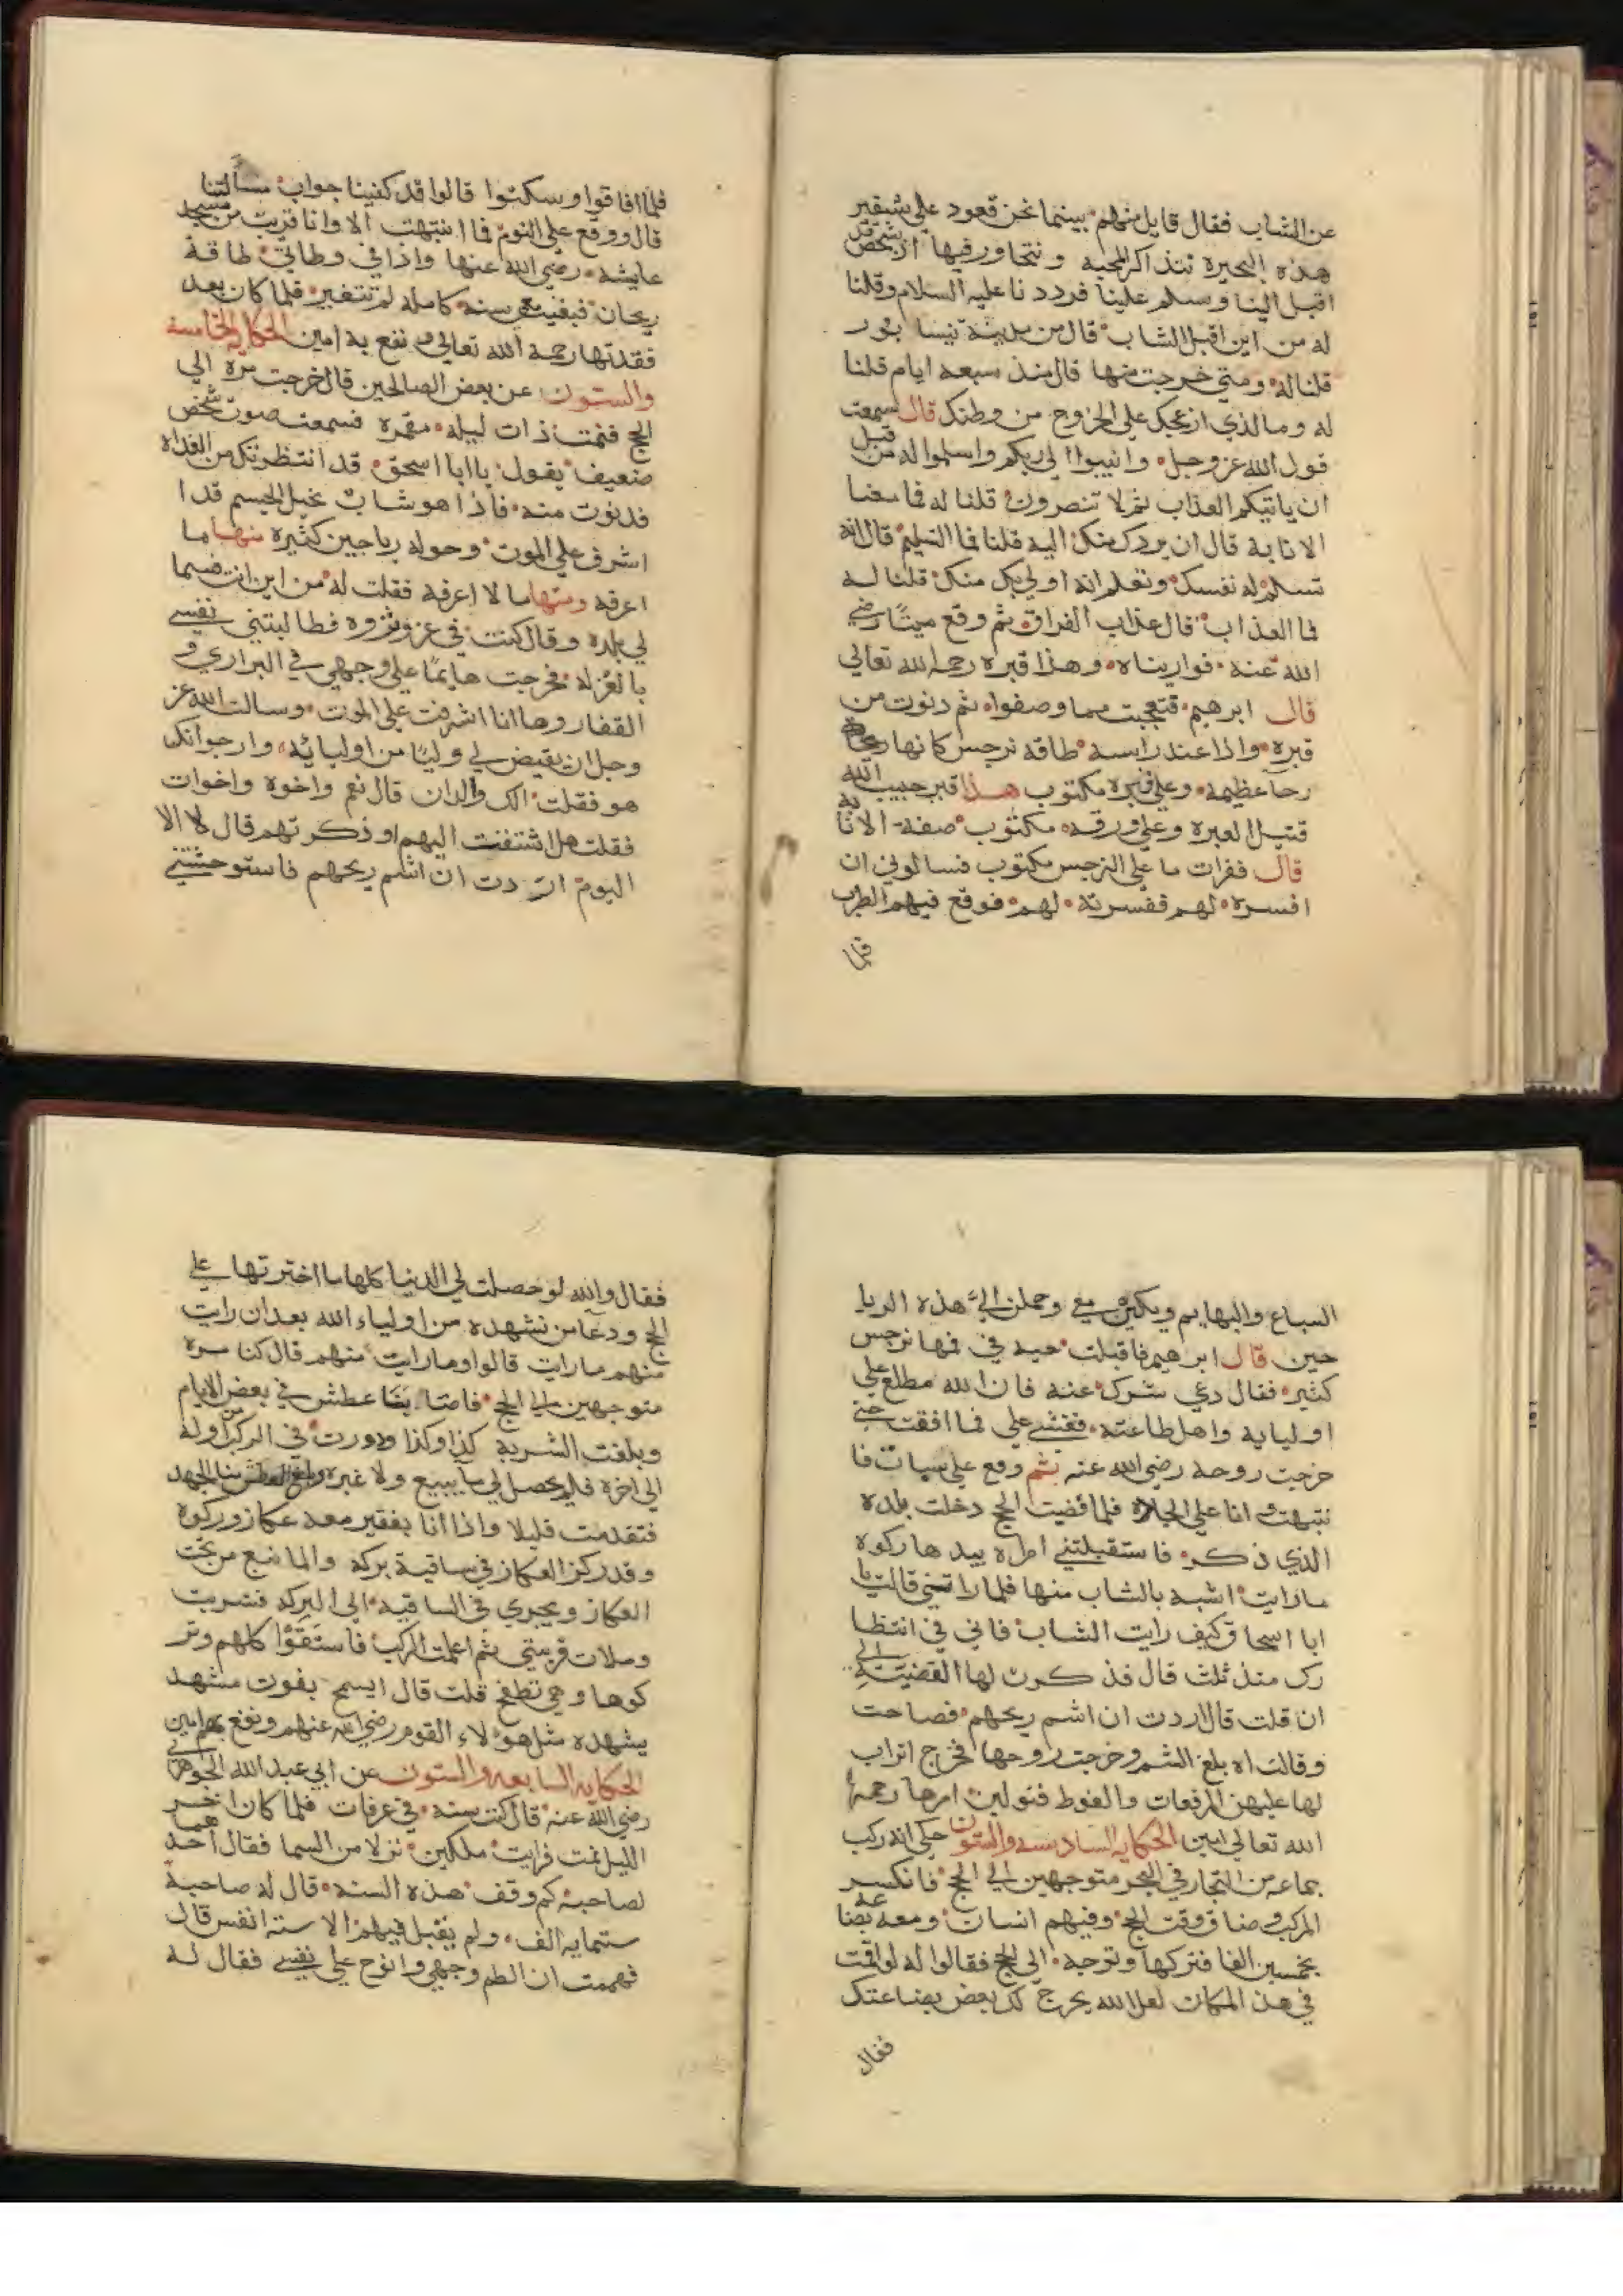 عن الشاب فقال قايل منهم بينما نحن قعود علي شفير
هذه البحيرة نتذاكر المحبه ونتحاور فيها اذ شخص قد
اقبل الينا وسلم علينا فرددنا عليه السلام وقلنا
له من اين اقبل الشاب قال من مدينة نيسابور
قلنا له ومتي خرجت منها قال منذ سبعه ايام قلنا
له وما الذي ازعجك علي الخروج من وطنك قال سمعت
قول الله عز وجل وانيبوا الي ربكم واسلموا له من قبل
ان ياتيكم العذاب ثم لا تنصرون قلنا له فما معنا
الانابة قال ان يردك منك اليه قلنا فما التسليم قال انه
تسلم له نفسك وتعلم انه اولي بك منك قلنا له
فما العذاب قال عذاب الفراق ثم وقع ميتا رضي
الله عنه فواريناه وهذا قبره رحمه الله تعالي
قال ابرهيم فتعجبت مما وصفوا ثم دنوت من
قبره واذا عند راسه طاقه نرجس كانها
رحا عظيمه وعلي قبره مكتوب هذا قبر حبيب الله
قتيل العبره وعلي ورقه مكتوب صفة الانابه
قال فقرات ما علي النرجس مكتوب فسالوني ان
افسره لهم ففسرته لهم فوقع فيهم الطرب
فلما
فلما افاقوا وسكتوا قالوا قد كفينا جواب مسألتنا
قال ووقع علي النوم فما انتبهت الا وانا قريب من مسجد
عايشه رضي الله عنها واذا في وطاتي طاقة
ريحان فبقيت معي سنه كامله لم تتغير فلما كان بعد
فقدتها رحمة الله تعالي ونفع به امين الحكايه الخامسه
والستون عن بعض الصالحين قال خرجت مرة الي
الحج فنمت ذات ليله مقمره فسمعت صوت شخص
ضعيف يقول يا ابا اسحق قد انتظرتك من الغداه
فدنوت منه فاذا هو شاب نحيل الجسم قد ا
اشرف علي الموت وحوله رياحين كثيره منها ما
اعرفه ومنها ما لا اعرفه فقلت له من اين انت فسما
لي بلده وقال كنت في عز وثروه فطالبتني نفسي
بالعزله فخرجت هايما علي وجهي في البراري و
القفار وها انا اشرفت علي الموت وسالت الله عز
وجل ان يقيض لي وليا من اوليائه وارجوا انك
هو فقلت الك والدان قال نعم واخوة واخوات
فقلت هل اشتقت اليهم او ذكرتهم قال لا الا
اليوم اردت ان اشم ريحهم فاستوحشتني
السباع والبهايم وبكين معي وحملن الي هذه الريا
حين قال ابرهيم فاقبلت حيه في فمها نرجس
كثير فقال دعي شرك عنه فان الله مطلع علي
اوليايه واهل طاعته فغشي علي فما افقت حتي
خرجت روحه رضي الله عنه ثم وقع علي سبات فا
نتبهت وانا علي الجاده فلما قضيت الحج دخلت بلده
الذي ذكر فاستقبلتني امراه بيدها ركوه
ما رايت اشبه بالشاب منها فلما راتني قالت يا
ابا اسحاق كيف رايت الشاب فاني في انتظا
رك منذ ثلث قال فذكرت لها القضية الي
ان قلت قال اردت ان اشم ريحهم فصاحت
وقالت اه بلغ الشم وخرجت روحها فخرج اتراب
لها عليهن المرقعات والفوط فتولين امرها رحمها
الله تعالي امين الحكايه السادسه والستون حكي انه ركب
جماعه من التجار في البحر متوجهين الي الحج فانكسر
المركب وضاق وقت الحج وفيهم انسان ومعه بضاعه
بخمسين الفا فتركها وتوجه الي الحج فقالوا له لو اقمت
في هذ المكان لعل الله يخرج لك بعض بضاعتك
فقال
فقال والله لو حصلت لي الدنيا كلها ما اخترتها علي
الحج ودعا من نشهده من اولياء الله بعد ان رايت
منهم ما رايت قالوا وما رايت منهم قال كنا مرة
متوجهين الي الحج فاصابنا عطش في بعض الايام
وبلغت الشربه كذا وكذا ودورت في الركب من اوله
الي اخره فلم يحصل لي ما يبيع ولا غيره وبلغ العطش بنا الجهد
فتقدمت قليلا واذا انا بفقير معه عكاز وركوة
وقد ركز العكاز في ساقية بركه والما نبع من تحت
العكاز ويجري في الساقيه الي البركه فشربت
وملات قربتي ثم اعلمت الركب فاستقوا كلهم وتر
كوها وهي تطفح قلت قال ايسمح بفوت مشهد
يشهده مثل هؤلاء القوم رضي الله عنهم ونفع بهم امين
الحكايه السابعه والستون عن ابي عبد الله الجوهري
رضي الله عنه قال كنت سنه في عرفات فلما كان اخر
الليل نمت فرايت ملكين نزلا من السما فقال احدهما
لصاحبه كم وقف هذه السنه قال له صاحبه
ستمايه الف ولم يقبل فيهم الا سته انفس قال
فهممت ان الطم وجهي وانوح علي نفسي فقال له